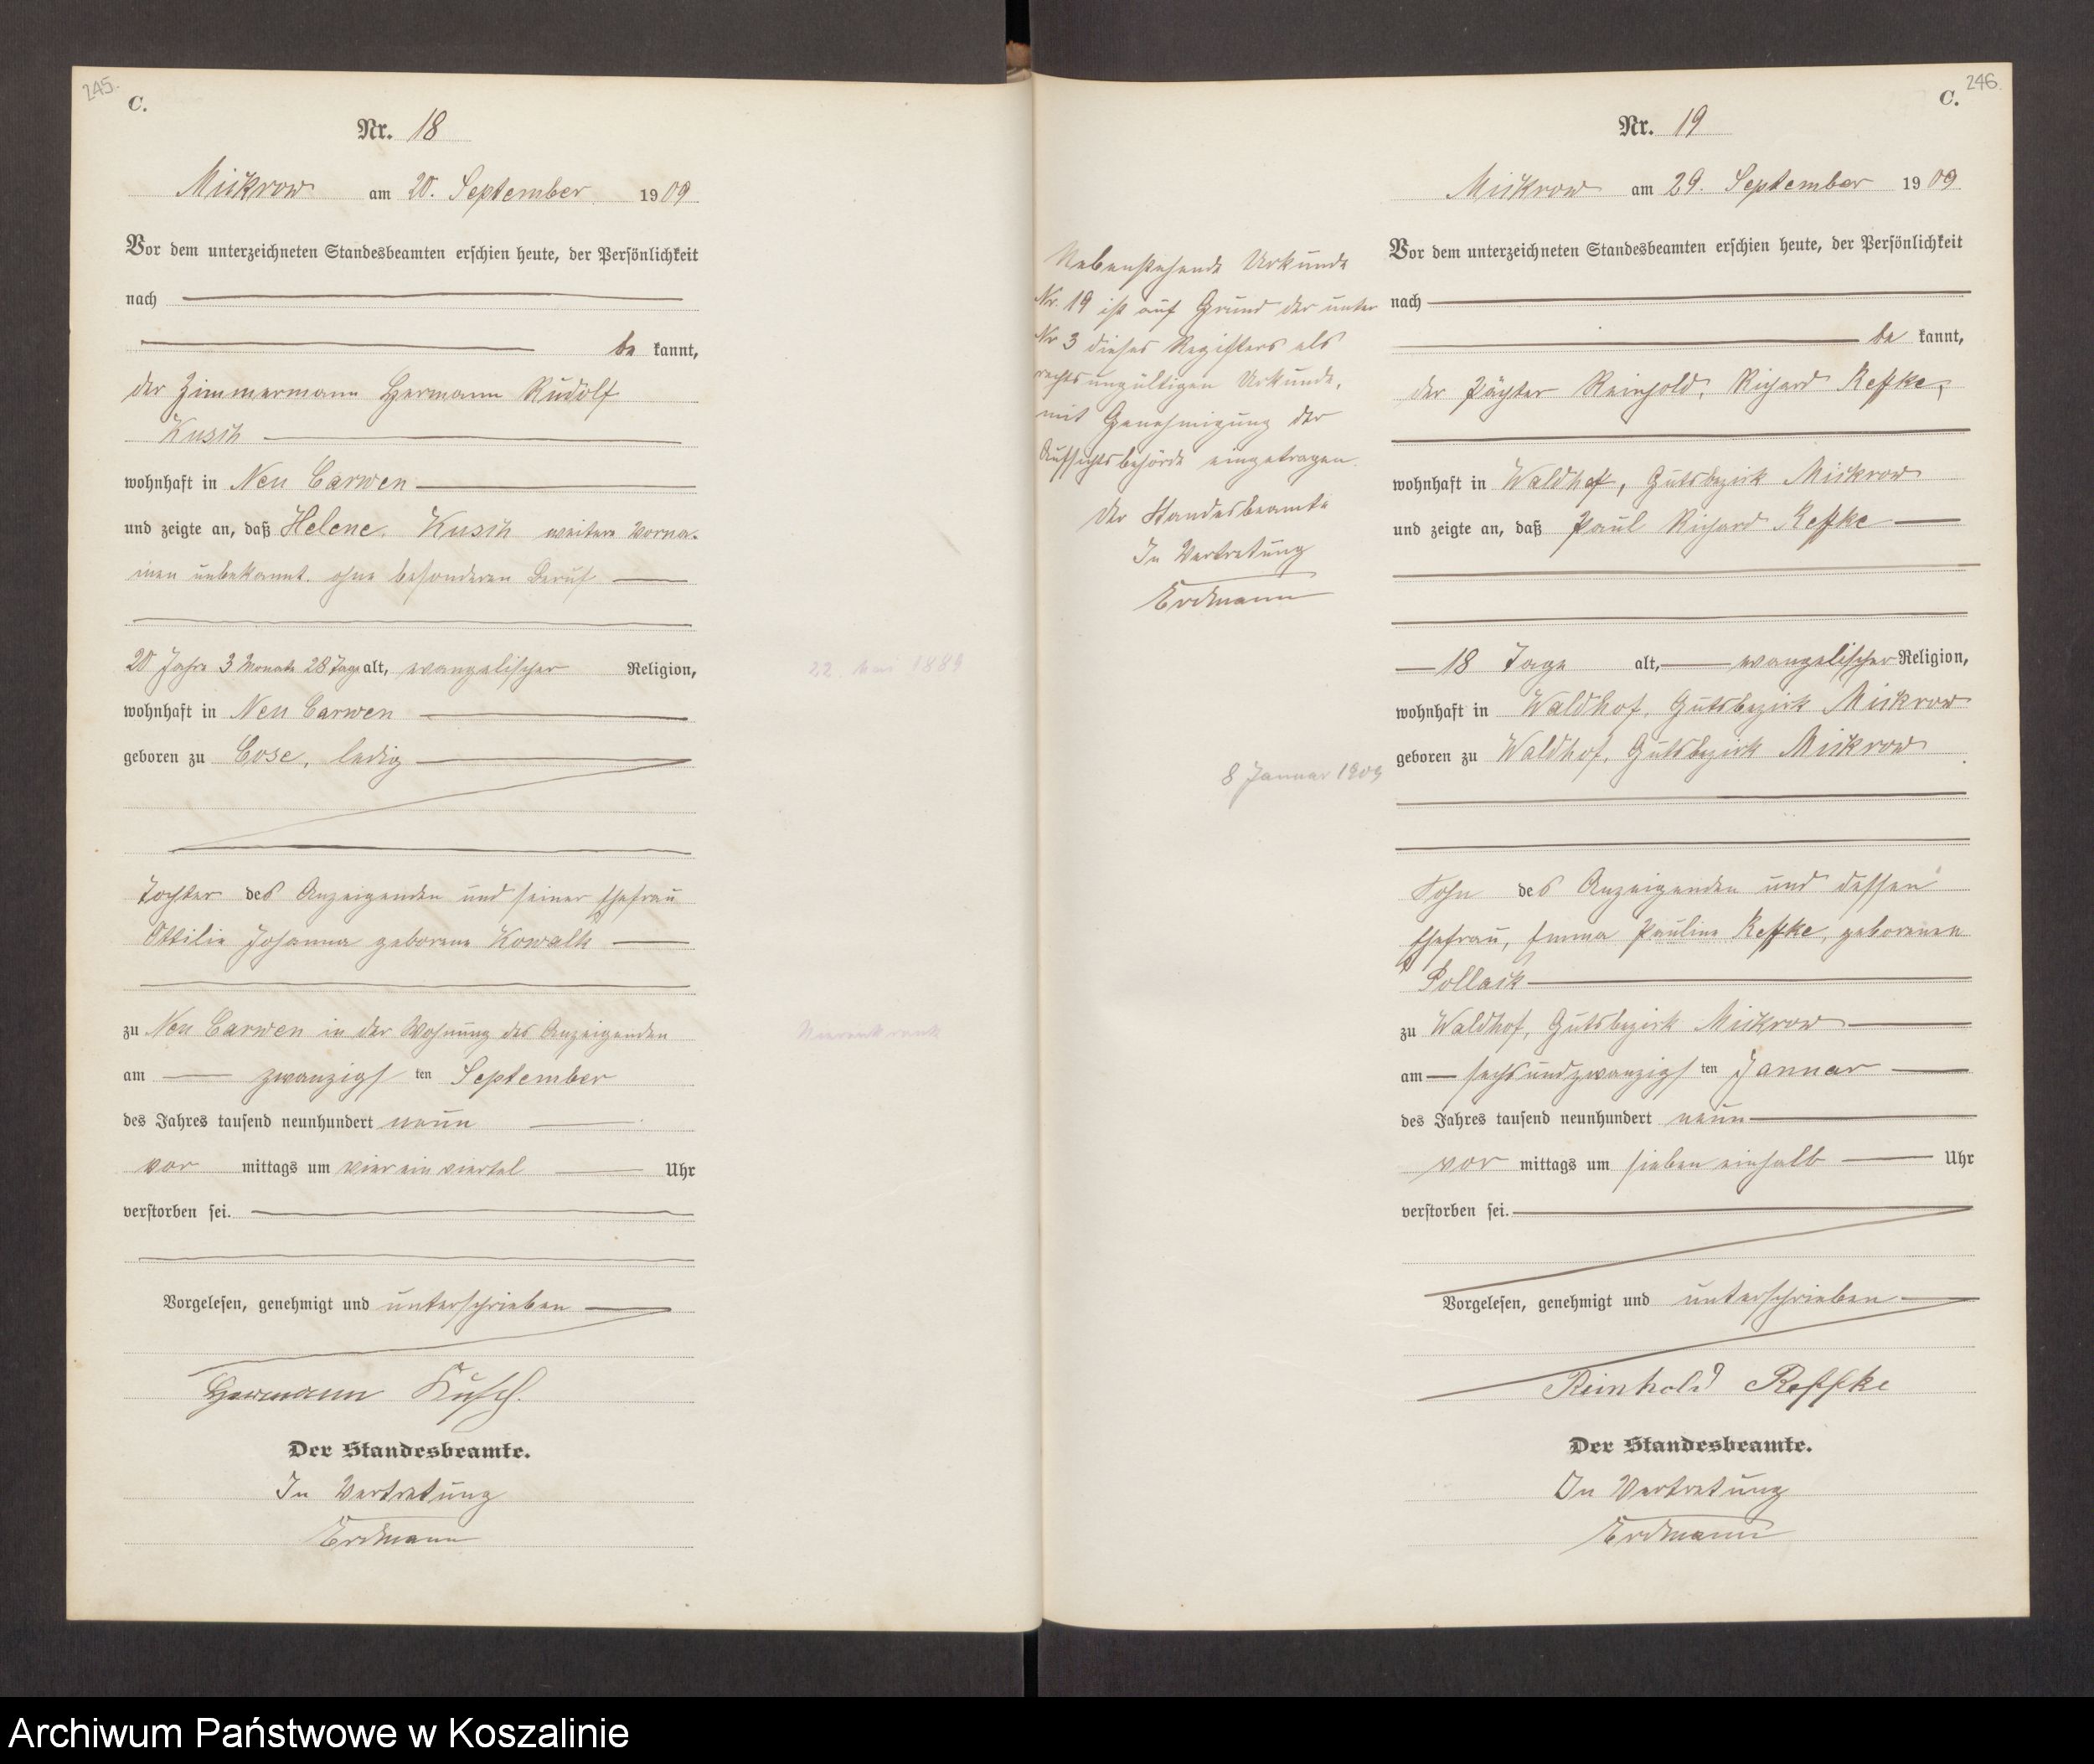 245.
C.
Nr. 18
Mickrow am 20. September 1909
Vor dem unterzeichneten Standesbeamten erschien heute, der Persönlichkeit
nach
be kannt,
der Zimmermann Hermann Rudolf
Kusch
wohnhaft in Neu Carwen
und zeigte an, daß Helene Kusch weitere Vorna-
men unbekannt. ohne besonderen Beruf
20 Jahre 3 Monate 28 Tage alt, evangelischer Religion,
wohnhaft in Neu Carwen
geboren zu Cose, ledig
Tochter des Anzeigenden und seiner Ehefrau
Ottilie Johanna geborene Kowalk
zu Neu Carwen in der Wohnung des Anzeigenden
am zwanzigs ten September
des Jahres tausend neunhundert neun
vor mittags um vier ein viertel Uhr
verstorben sei.
Vorgelesen, genehmigt und unterschrieben
Hermann Kusch.
Der Standesbeamte.
In Vertretung
Erdmann
22. Mai 1889
Nierenkrank
246.
C.
Nr. 19
Mickrow am 29. September 1909
Vor dem unterzeichneten Standesbeamten erschien heute, der Persönlichkeit
nach
be kannt,
der Pächter Reinhold, Richard Reffke,
wohnhaft in Waldhof, Gutsbezirk Mickrow
und zeigte an, daß Paul Richard Reffke
18 Tage alt, evangelischer Religion,
wohnhaft in Waldhof, Gutsbezirk Mickrow
geboren zu Waldhof, Gutsbezirk Mickrow
Sohn des Anzeigenden und dessen
Ehefrau, Emma Pauline Reffke, geborenen
Pollack
zu Waldhof, Gutsbezirk Mickrow
am sechsundzwanzigs ten Januar
des Jahres tausend neunhundert neun
vor mittags um sieben einhalb Uhr
verstorben sei.
Vorgelesen, genehmigt und unterschrieben
Reinhold Reffke
Der Standesbeamte.
In Vertretung
Erdmann
Nebenstehende Urkunde
Nr. 19 ist auf Grund der unter
Nr 3 dieses Registers als
rechtsungültigen Urkunde,
mit Genehmigung der
Aufsichtsbehörde eingetragen.
Der Standesbeamte
In Vertretung
Erdmann
8 Januar 1909
Archiwum Państwowe w Koszalinie